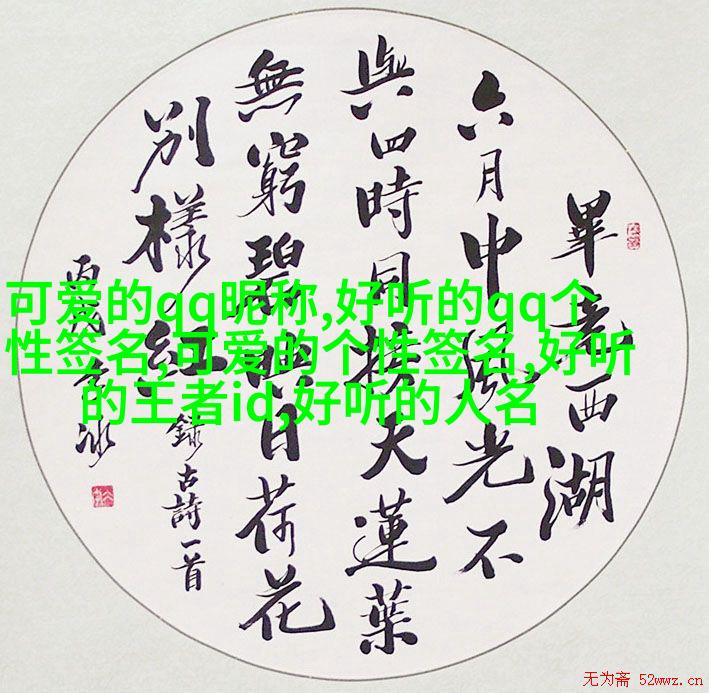 畢竟西湖
六月中風光不
與四時同接天蓮葉
無窮碧映日荷花
別樣紅
錄古詩一首
可爱的qq昵称,好听的qq个
性签名,可爱的个性签名,好听
的王者id,好听的人名
无为斋 52wwz.cn